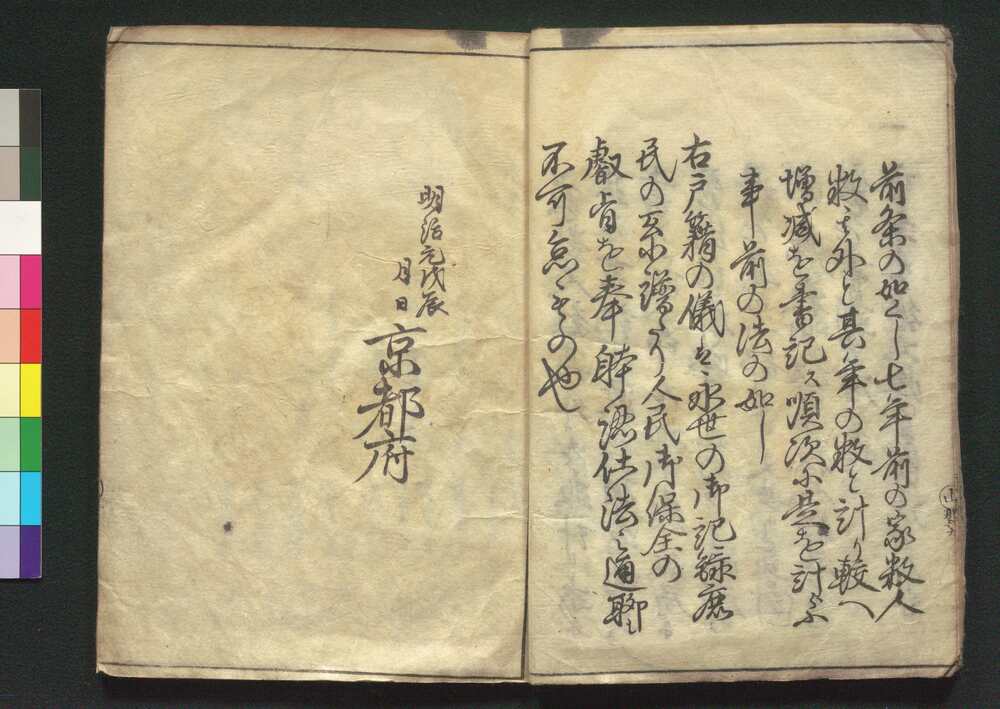 前条の如くし七年前の家数人
数を外と其年の数と計り較へ
増減を書記ス順次ニ是を計ふ
事前の法の如し
右戸籍の儀ハ永世の御記録庶
民の系譜ニ而人民御保全の
叡旨を奉躰認仕法之通聊も
不可怠もの也
明治元戊辰
月日
京都府